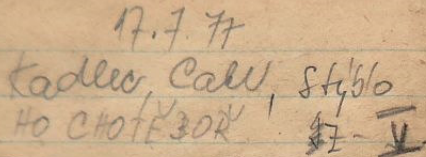 17.7.77
Kadlec, Calt, Stýblo
HO CHOTĚBOŘ IZ-V